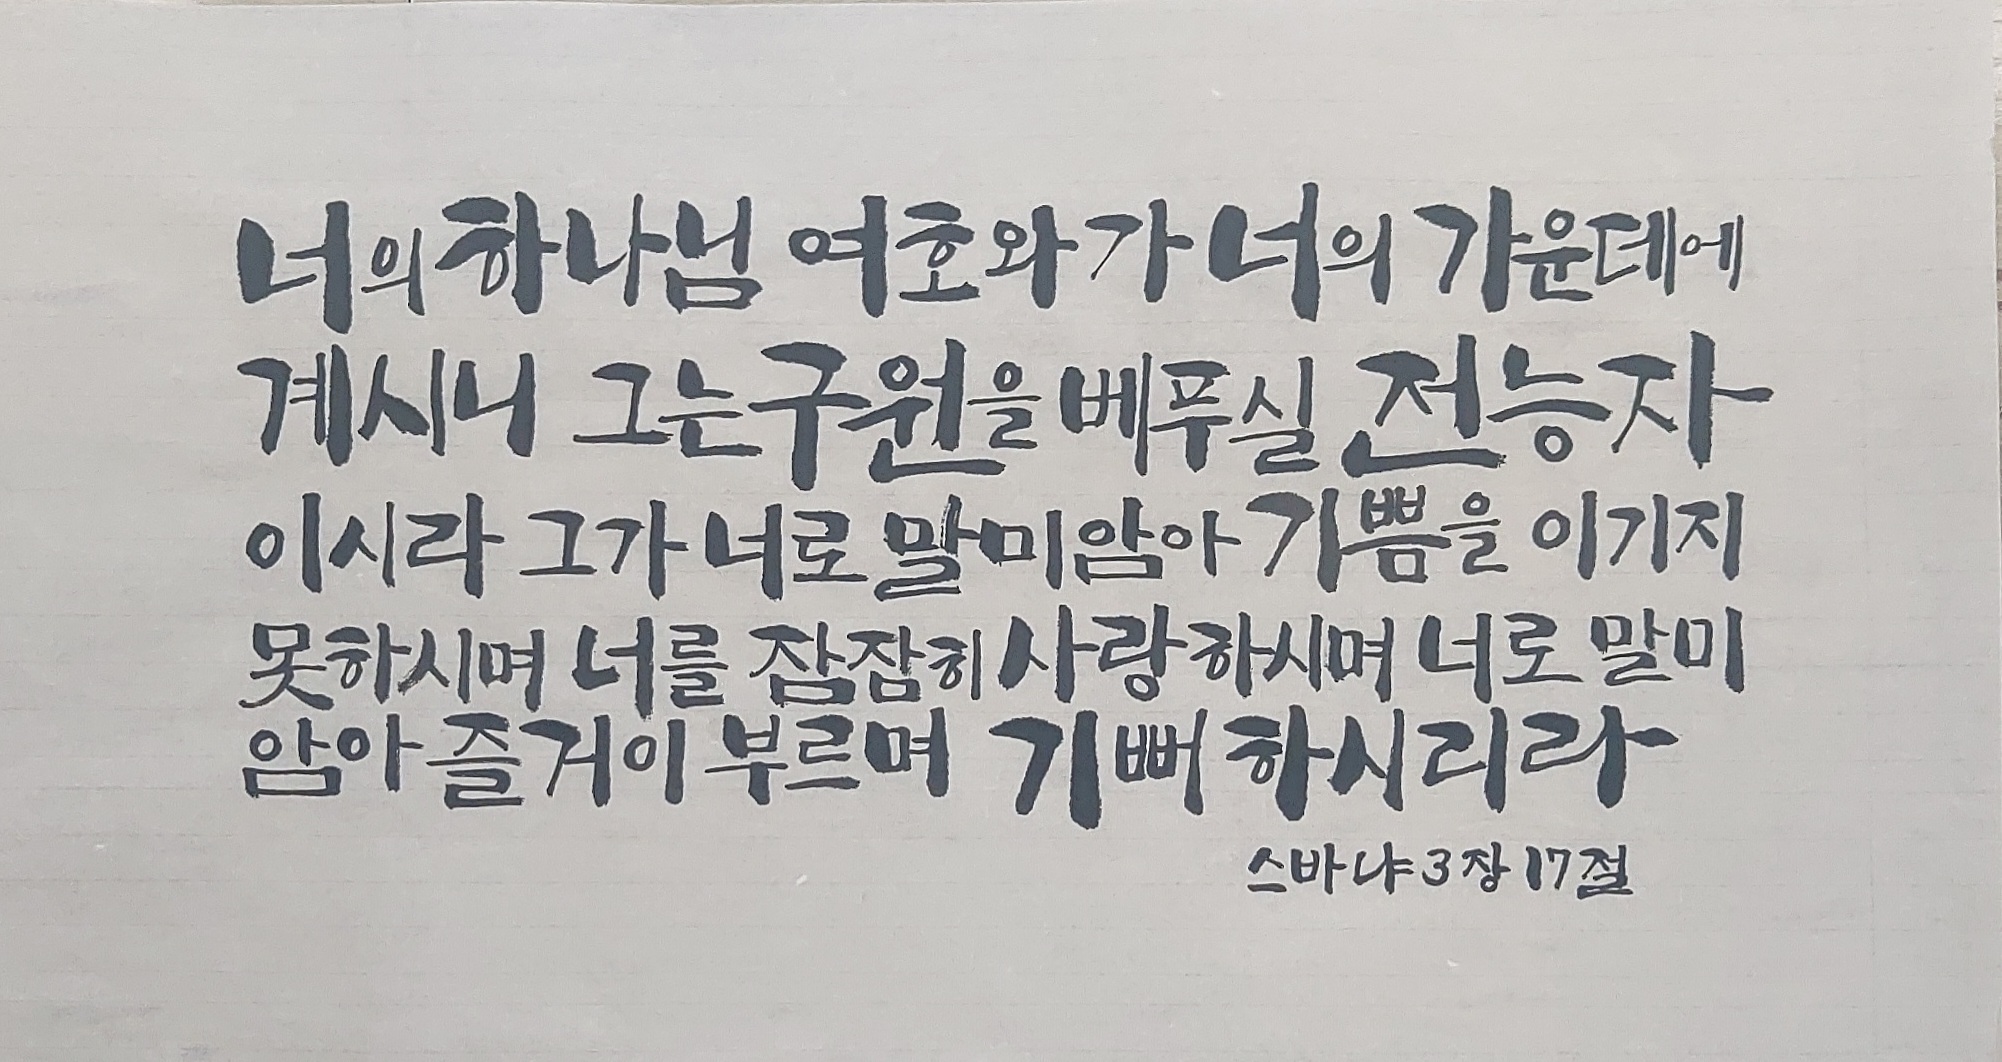 너의 하나님 여호와가 너의 가운데에
계시니 그는 구원을 베푸실 전능자
이시라 그가 너로 말미암아 기쁨을 이기지
못하시며 너를 잠잠히 사랑하시며 너로 말미
암아 즐거이 부르며 기뻐하시리라
스바냐 3장 17절